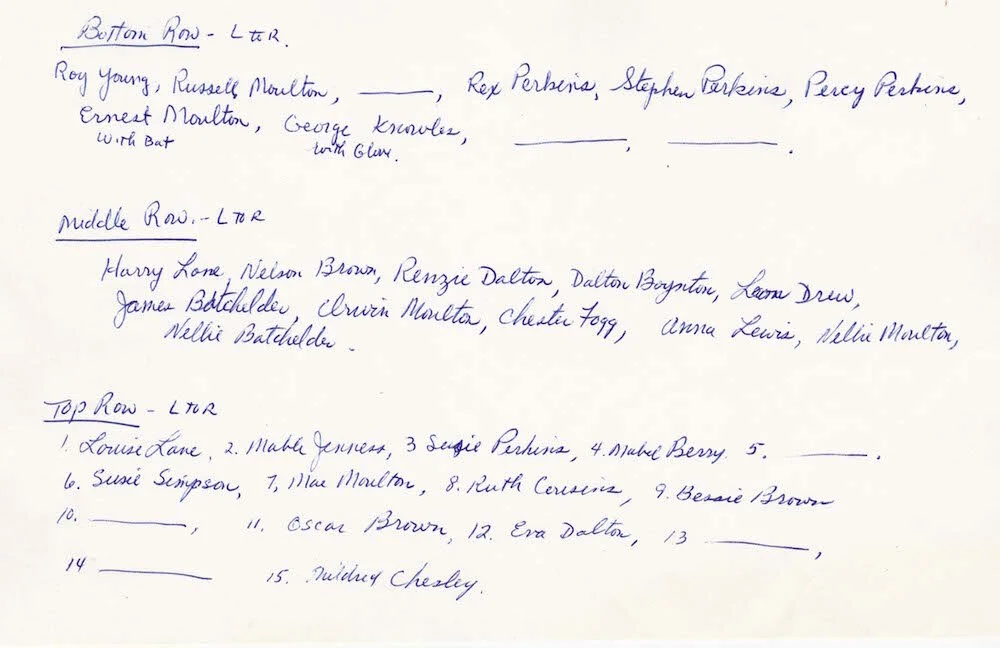 Bottom Row - L to R.
Roy Young, Russell Moulton, ____, Rex Perkins, Stephen Perkins, Percy Perkins,
Ernest Moulton, George Knowles, ____, ____.
With Bat With Glove.
Middle Row. - L to R
Harry Lane, Nelson Brown, Renzie Dalton, Dalton Boynton, Leon Drew,
James Batchelder, Urwin Moulton, Chester Fogg, Anna Lewis, Nellie Moulton,
Nellie Batchelder.
Top Row - L to R
1. Louise Lane, 2. Mable Jenness, 3 Susie Perkins, 4. Mabel Berry. 5. ____.
6. Susie Simpson, 7, Mae Moulton, 8. Ruth Cousins, 9. Bessie Brown
10. ____, 11. Oscar Brown, 12. Eva Dalton, 13 ____,
14 ____ 15. Mildred Chesley.